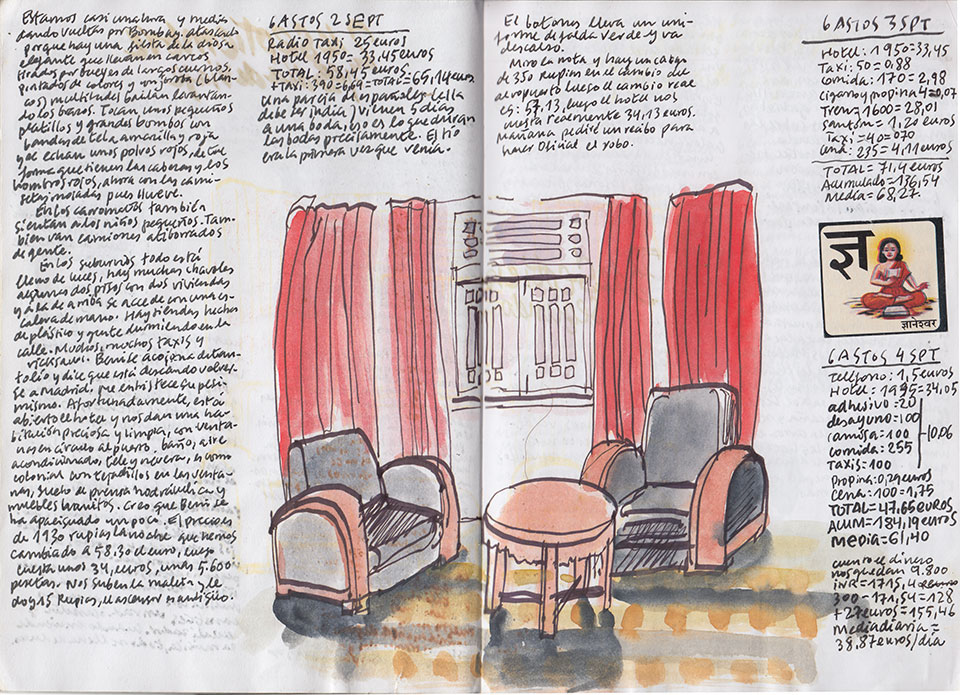 Estamos casi una hora y media
dando vueltas por Bombay, atascado
porque hay una fiesta de la diosa
elefante que llevan en carros
tirados por bueyes de largos cuernos,
pintados de colores y con
cos) multitudes bailan levantan-
do los brazos. Tocan unos pequeños
platillos y grandes bombos con
bandas de tela amarilla y roja
y se echan unos polvos rojos, de tal
forma que tienen las cabezas y los
hombros rojos, ahora con las cami-
setas mojadas pues llueve.
En los carromatos también
sientan a los niños pequeños. Tam-
bien van camiones atiborrados
de gente.
En los suburvios todo está
lleno de luces, hay muchas chavolas
algunas dos pisos con dos viviendas
y a la de arriba se accede con una es-
calera de mano. Hay tiendas hechas
de plástico y gente durmiendo en la
calle. Muchos, muchos taxis y
ricksaws. Beni se acojona de tan-
to lio y dice que está deseando volver-
se a Madrid, me entristece su pesi-
mismo. Afortunadamente, está
abierto el hotel y nos dan una ha-
bitación preciosa y limpia, con venta-
nas en círculo al puerto, baño, aire
acondicionado, tele y nevera,
colonial con tejadillos en las venta-
nas, suelo de prensa hidráulica y
muebles bonitos. Creo que Beni se
ha apaciguado un poco. El precio es
de 1130 rupias la noche que hemos
cambiado a 58,30 el euro, luego
cuesta unos 34 euros, unas 5.600
pesetas. Nos suben la maleta y le
doy 15 Rupias, el ascensor es antiguo.
GASTOS 2 SEPT
Radio Taxi 25 euros
Hotel 1950 = 33,45 euros
TOTAL: 58,45 euros
+ taxi: 390 = 6,69 = TOTAL = 65,14 euros
Una pareja de españoles (ella
debe ser india) vienen 5 días
a una boda, eso es lo que duran
las bodas precisamente. El tío
era la primera vez que venía.
El botones lleva un uni-
forme de falda verde y va
descalzo.
Miro la nota y hay un cargo
de 350 Rupias en el cambio del
aeropuerto luego el cambio real
es: 57,13, luego el hotel nos
cuesta realmente 34,13 euros.
Mañana pediré un recibo para
hacer oficial el robo.
GASTOS 3 SPT
Hotel: 1950 = 33,45
Taxi: 50 = 0,88
Comida: 170 = 2,98
cigarro y propina 4 = 0,07
Tren: 1600 = 28,01
Sandwin = 1,20 euros
Taxi = 40 = 070
Cena: 235 = 4,11 euros
TOTAL = 71,4 euros
Acumulado = 136,54
Media = 68,27
ज्ञ
ज्ञानेश्वर
GASTOS 4 SPT
Teléfono: 1,5 euros
Hotel = 1995 = 34,05
adhesivo = 20
desayuno = 100
camisa = 100
comida: 255
Taxis = 100
10,06
propina: 0,29 euros
Cena: 100 = 1,75
TOTAL = 47,65 euros
ACUM = 184,19 euros
MEDIA = 61,40
cuento el dinero
nos quedan 9.800
INR = 171,54 euros
300 - 171,54 = 128
+ 27 euros = 155,46
Media diaria =
38,87 euros/día